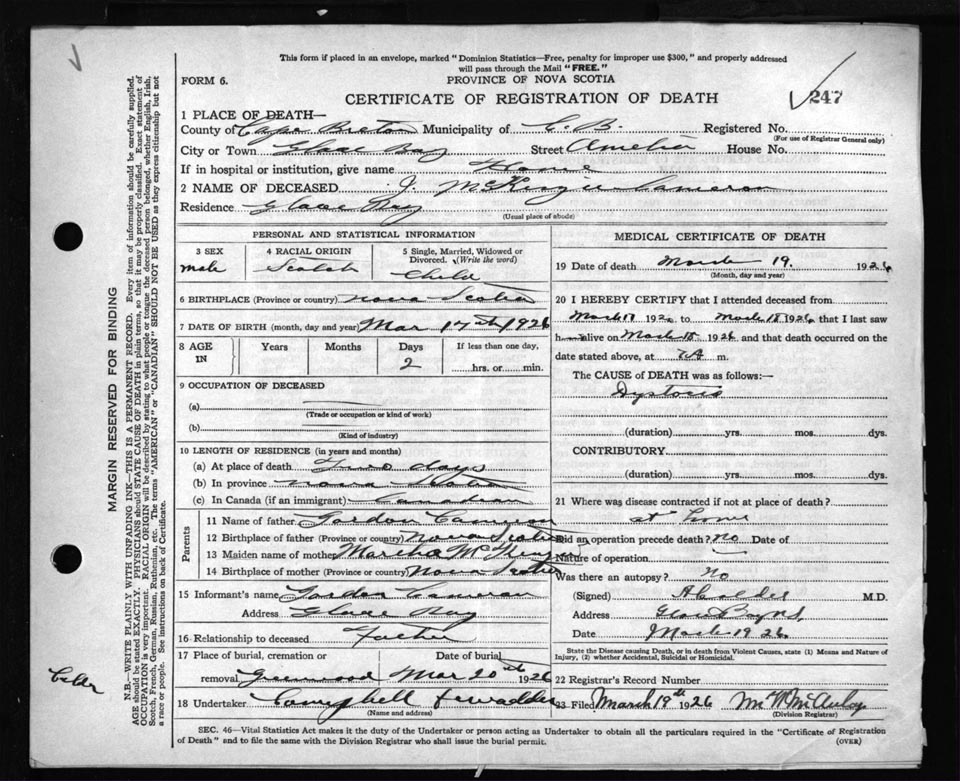 This form if placed in an envelope, marked "Dominion Statistics—Free, penalty for improper use $300," and properly addressed
will pass through the Mail "FREE."
FORM 6.
PROVINCE OF NOVA SCOTIA
CERTIFICATE OF REGISTRATION OF DEATH
247
1 PLACE OF DEATH—
County of Cape Breton Municipality of C. B. Registered No.
(For use of Registrar General only)
City or Town Glace Bay Street Amelia House No.
If in hospital or institution, give name Home
2 NAME OF DECEASED J. McKenzie Cameron
Residence Glace Bay
(Usual place of abode)
PERSONAL AND STATISTICAL INFORMATION
3 SEX male
4 RACIAL ORIGIN Scotch
5 Single, Married, Widowed or
Divorced. (Write the word)
Child
6 BIRTHPLACE (Province or country) Nova Scotia
7 DATE OF BIRTH (month, day and year) Mar 17th 1926
8 AGE IN Years Months Days 2 If less than one day,
hrs. or min.
9 OCCUPATION OF DECEASED
(a)
(Trade or occupation or kind of work)
(b)
(Kind of industry)
10 LENGTH OF RESIDENCE (in years and months)
(a) At place of death Two days
(b) In province Nova Scotia
(c) In Canada (if an immigrant) Canadian
Parents
11 Name of father Gordon Cameron
12 Birthplace of father (Province or country) Nova Scotia
13 Maiden name of mother Martha
14 Birthplace of mother (Province or country) Nova Scotia
15 Informant's name Gordon Cameron
Address Glace Bay
16 Relationship to deceased Father
17 Place of burial, cremation or Date of burial
removal Greenwood Mar 20th 1926
18 Undertaker Campbell &
(Name and address)
MEDICAL CERTIFICATE OF DEATH
19 Date of death March 19. 1926
(Month, day and year)
20 I HEREBY CERTIFY that I attended deceased from
March 17 1926 to March 18 1926, that I last saw
h alive on March 18 1926 and that death occurred on
the date stated above, at 7A m.
The CAUSE of DEATH was as follows:—
Dystocia
(duration) yrs. mos. dys.
CONTRIBUTORY
(duration) yrs. mos. dys.
21 Where was disease contracted if not at place of death?
at home
Did an operation precede death? No Date of
Nature of operation
Was there an autopsy? No
(Signed) M.D.
Address Glace Bay N.S.
Date March 19 26
State the Disease causing Death, or in death from Violent Causes, state (1) Means and Nature of
Injury, (2) whether Accidental, Suicidal or Homicidal.
22 Registrar's Record Number
23 Filed March 19th 1926
(Division Registrar)
SEC. 46—Vital Statistics Act makes it the duty of the Undertaker or person acting as Undertaker to obtain all the particulars required in the "Certificate of Registration
of Death" and to file the same with the Division Registrar who shall issue the burial permit. (OVER)
MARGIN RESERVED FOR BINDING
N.B.—WRITE PLAINLY WITH UNFADING INK—THIS IS A PERMANENT RECORD. Every item of information should be carefully supplied.
AGE should be stated EXACTLY. PHYSICIANS should STATE CAUSE OF DEATH in plain terms, so that it may be properly classified. Exact statement of
OCCUPATION is very important. RACIAL ORIGIN will be described by stating to what people or tongue the deceased person belonged, whether English, Irish,
Scotch, French, German, Russian, Ruthenian, etc. The terms "AMERICAN" or "CANADIAN" SHOULD NOT BE USED as they express citizenship but not
a race or people. See instructions on back of Certificate.